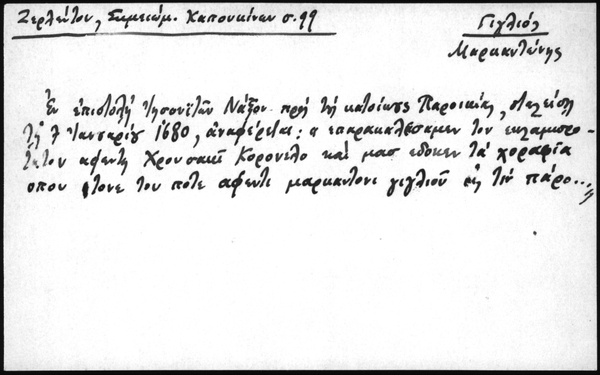 Ζερλέντου, Σημειώμ. Καπουκίνων σ. 99
Γιζλιός
Μαρκαντώνης
Ἐν ἐπιστολῇ Ἰησουϊτῶν Νάξου πρὸς τοὺς κατοίκους Παροικίας, σταλείσῃ
τῇ 7 Ἰανουαρίου 1680, ἀναφέρεται: " επαρακαλέσαμεν τον εκλαμπρό-
τατον αφέντη Χρουσακί Κορονέλο καί μας εδοκεν τα χοραφία
οπου ητονε του ποτε αφεντι μαρκαντονι γιζλιού εις την πάρο...,,